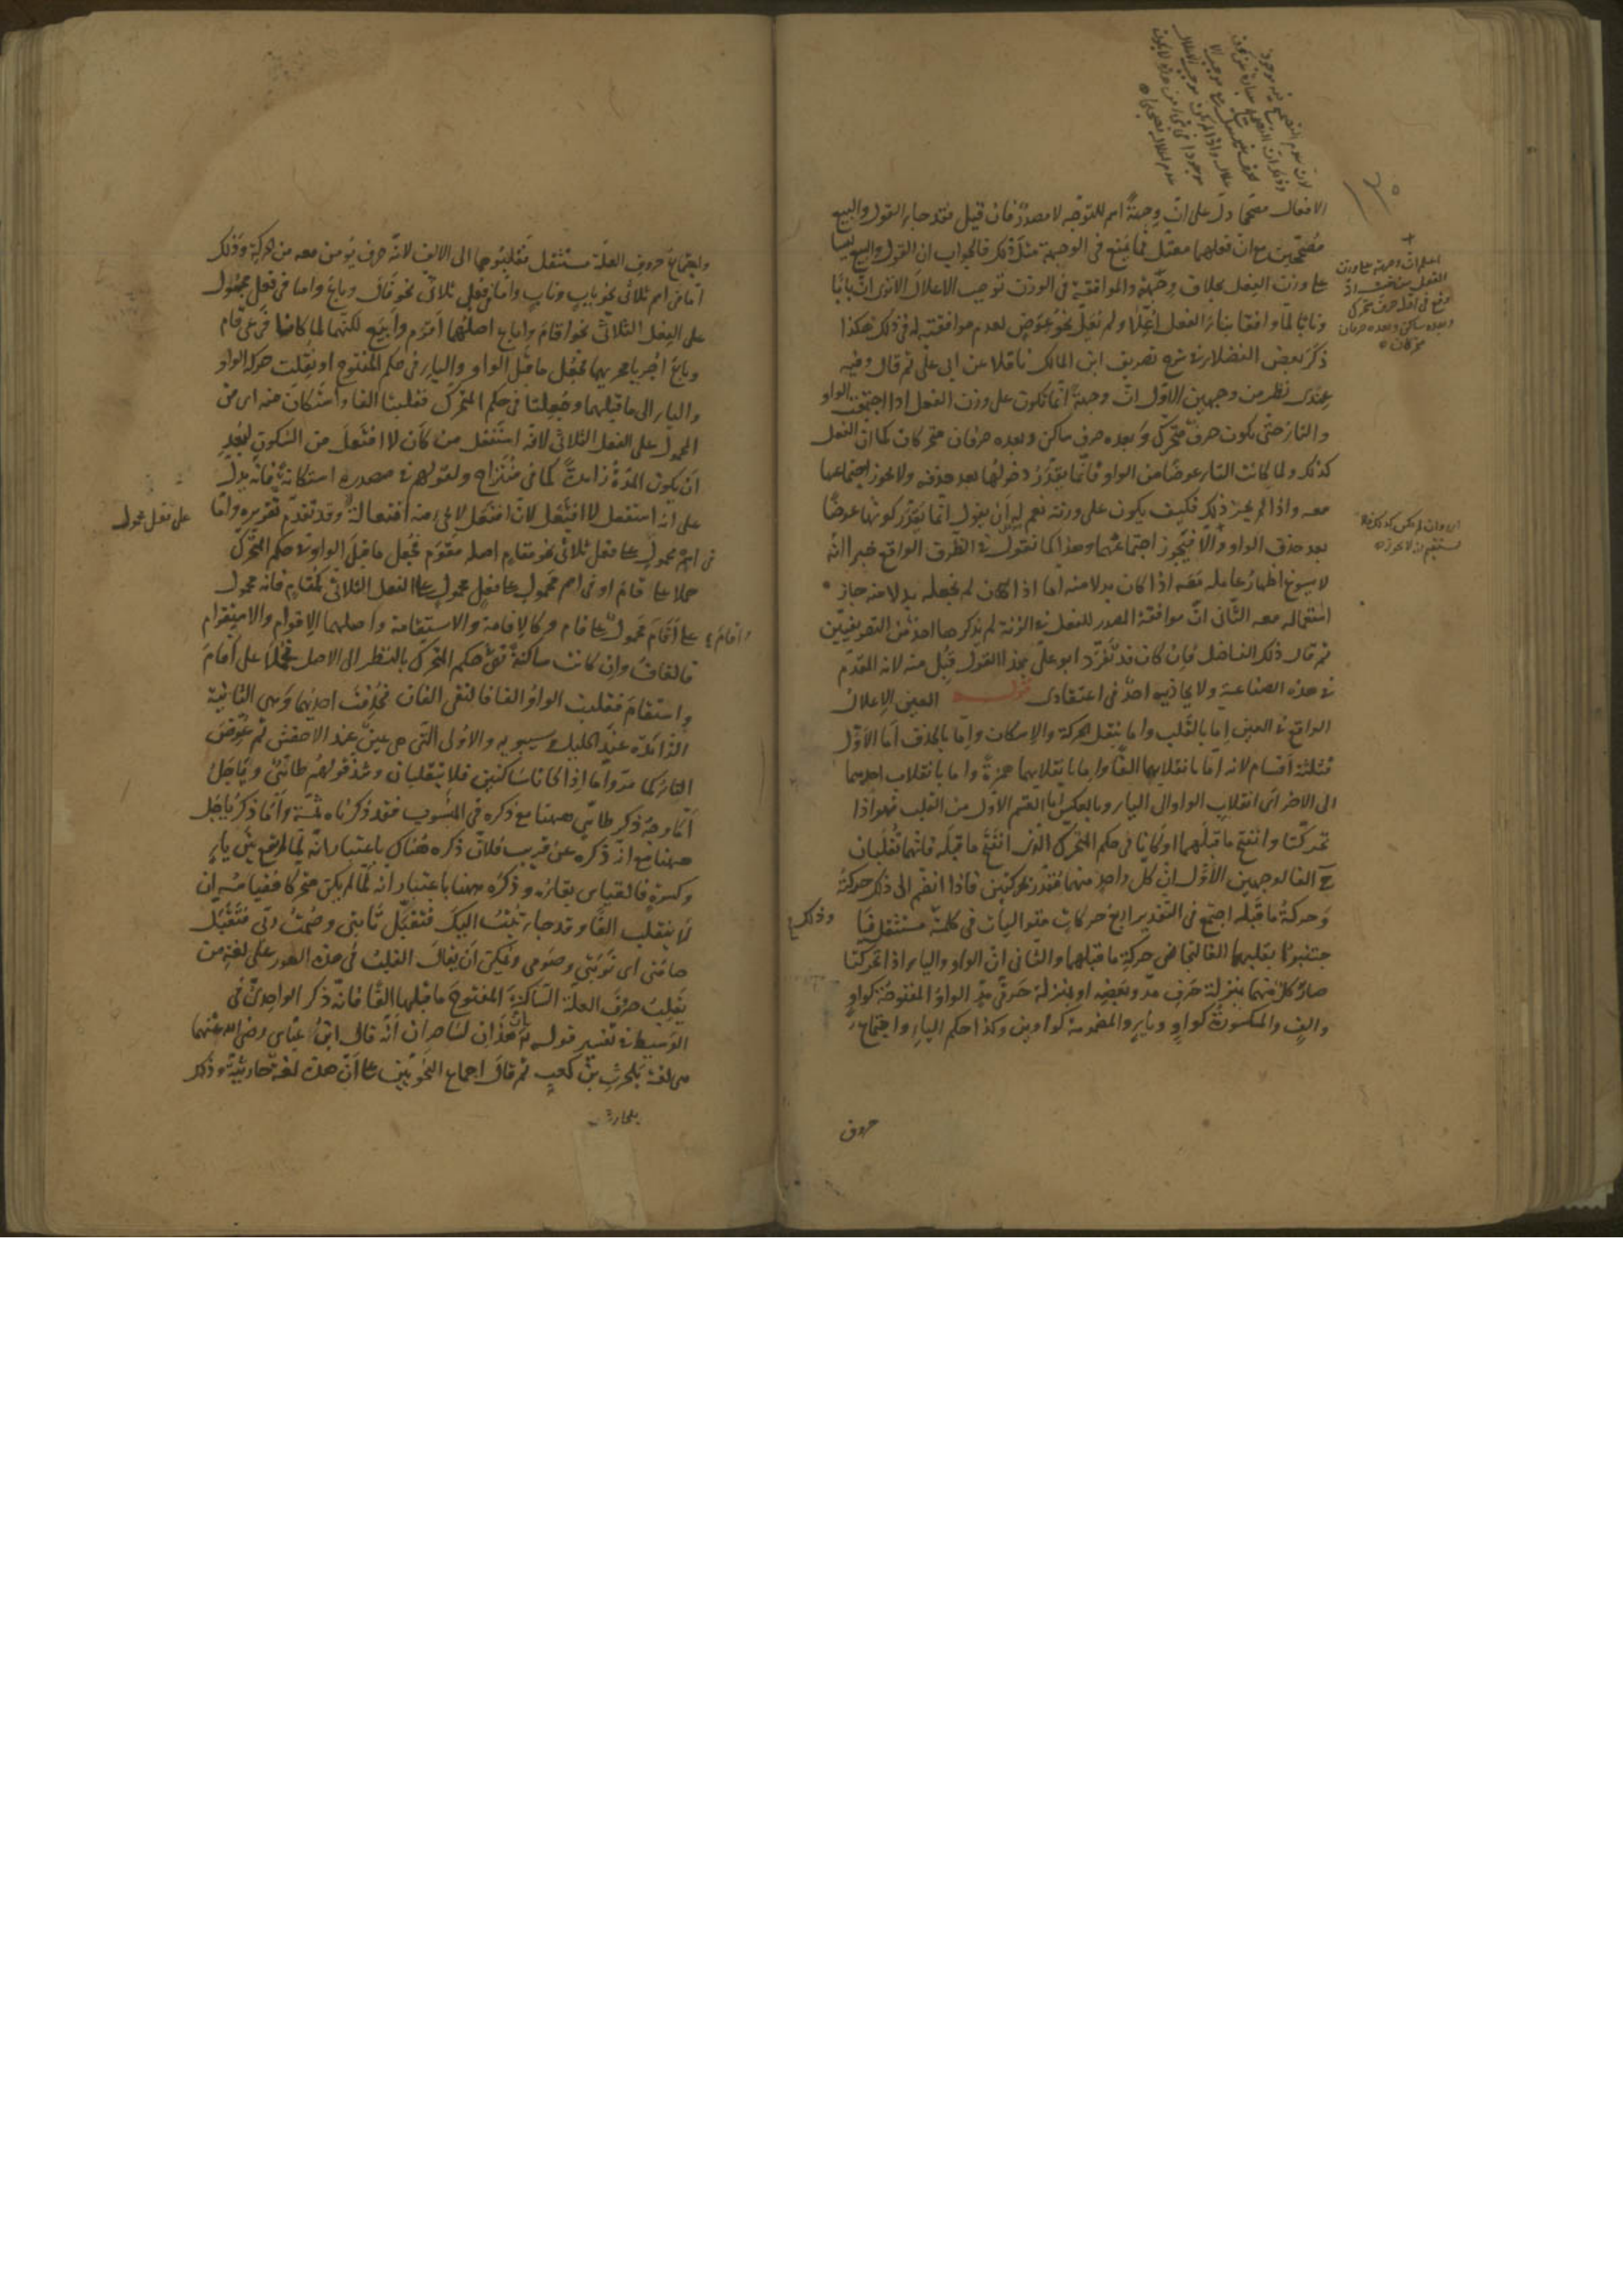 الافعال مصححا دل على ان وجهة اسم للتوجه لا مصدر فان قيل فقد جاء القول والبيع
مصححين مع ان فعلهما معتل فما يمنع في الوجهة مثل ذلك فالجواب ان القول والبيع ليسا
على وزن الفعل بخلاف وجهة والموافقة في الوزن توجب الاعلال الا ترى ان بابا
ونابا لما وافقا بناء الفعل اعلا ولم يعل نحو عوض لعدم موافقته له في ذلك هكذا
ذكر بعض الفضلاء في شرح تصريف ابن المالك ناقلا عن ابي علي ثم قال وفيه
عندي نظر من وجهين الاول ان وجهة انما تكون على وزن الفعل اذا اجتمعت الواو
والتاء حتى يكون حرف متحرك وبعده حرف ساكن وبعده حرفان متحركان كما ان الفعل
كذلك ولما كانت التاء عوضا من الواو فانما يقدر دخولها بعد حذفه ولا يجوز اجتماعها
معه واذا لم يجز ذلك فكيف يكون على وزنه نعم له ان يقول انما يقدر كونها عوضا
بعد حذف الواو والا فيجوز اجتماعهما وهذا كما نقول في الظرف الواقع خبرا انه
لا يسوغ اظهار عامله معه اذا كان بدلا منه اما اذا لم نجعله بدلا منه جاز
استعماله معه الثاني ان موافقة المصدر للفعل في الزنة لم يذكرها احد من التصريفيين
ثم قال ذلك الفاضل فان كان قد تفرد ابو علي بهذا القول قبل منه لانه المقدم
في هذه الصناعة ولا يحاذيه احد في اعتقادي قوله العين الاعلال
الواقع في العين اما بالقلب واما بنقل الحركة والاسكان واما بالحذف اما الاول
فثلثة اقسام لانه اما بانقلابهما الفا واما بانقلابهما همزة واما بانقلاب احديهما
الى الاخر اي انقلاب الواو الى الياء وبالعكس اما القسم الاول من القلب فهو اذا
تحركتا وانفتح ما قبلهما او كانا في حكم المتحرك الذي انفتح ما قبله فانهما تقلبان
ح الفا لوجهين الاول ان كل واحد منهما مقدر بحركتين فاذا انضم الى ذلك حركته
وحركة ما قبله اجتمع في التقدير اربع حركات متواليات في كلمة مستثقل
وذلك
بقلبهما الفا لتجانس حركة ما قبلهما والثاني ان الواو والياء اذا تحركتا
صار كل منهما بمنزلة حرف مد وبعضه او بمنزلة حرفي مد الواو المفتوحة كواو
والف والمكسورة كواو وياء والمضمومة كواوين وكذا حكم الياء واجتماع
حروف
واجتماع حروف العلة مستثقل فقلبوهما الى الالف لانه حرف يؤمن معه من الحركة وذلك
اما في اسم ثلاثي نحو باب وناب واما في فعل ثلاثي نحو قال وباع واما في فعل محمول
على الفعل الثلاثي نحو اقام واباع اصلهما اقوم وابيع لكنهما لما كانا فرعي قام
وباع اجريا مجريهما فجعل ما قبل الواو والياء في حكم المفتوح او نقلت حركة الواو
والياء الى ما قبلهما وجعلتا في حكم المتحرك فقلبتا الفا واستكان منه اي من
المحمول على الفعل الثلاثي لانه استفعل من كان لا افتعل من السكون لبعد
ان يكون المدة زائدة كما في منتزاح ولقولهم في مصدره استكانة فانه يدل
على انه استفعل لا افتعل لان افتعل لا يجيء منه افتعالة وقد تقدم تقريره واما
على فعل محمول
في اسم محمول على فعل ثلاثي نحو مقام اصله مقوم فجعل ما قبل الواو في حكم المتحرك
حملا على قام او في اسم محمول على فعل محمول على الفعل الثلاثي كمقام فانه محمول
على اقام محمول على قام وكالاقامة والاستقامة واصلهما الاقوام والاستقوام
فالقاف وان كانت ساكنة في حكم المتحرك بالنظر الى الاصل حملا على اقام
واستقام فقلبت الواو الفا فالتقى الفان فحذفت احديهما وهي الثانية
الزائدة عند الخليل وسيبويه والاولى التي هي عين عند الاخفش ثم عوض
التاء كما مر واما اذا كانا ساكنين فلا ينقلبان وشذ قولهم طائي وياجل
اما وجه ذكر طائي ههنا مع ذكره في المنسوب فقد ذكرناه ثمة واما ذكر ياجل
ههنا مع انه ذكره عن قريب فلان ذكره هناك باعتبار انه لما لم يقع بين ياء
وكسرة فالقياس بقاؤه وذكره ههنا باعتبار انه لما لم يكن متحركا فقياسه ان
لا ينقلب الفا وقد جاء تبت اليك فتقبل تابتي وصمت ربي فتقبل
صامتي اي توبتي وصومي ويمكن ان يقال القلب في هذه الصور على لغة من
يقلب حرف العلة الساكنة المفتوح ما قبلها الفا فانه ذكر الواحدي في
الوسيط في تفسير قوله تع ان هذان لساحران انه قال ابن عباس رضي الله عنهما
هي لغة بلحرث بن كعب ثم قال اجماع النحويين على ان هذه لغة حارثية وذلك
بلحارث